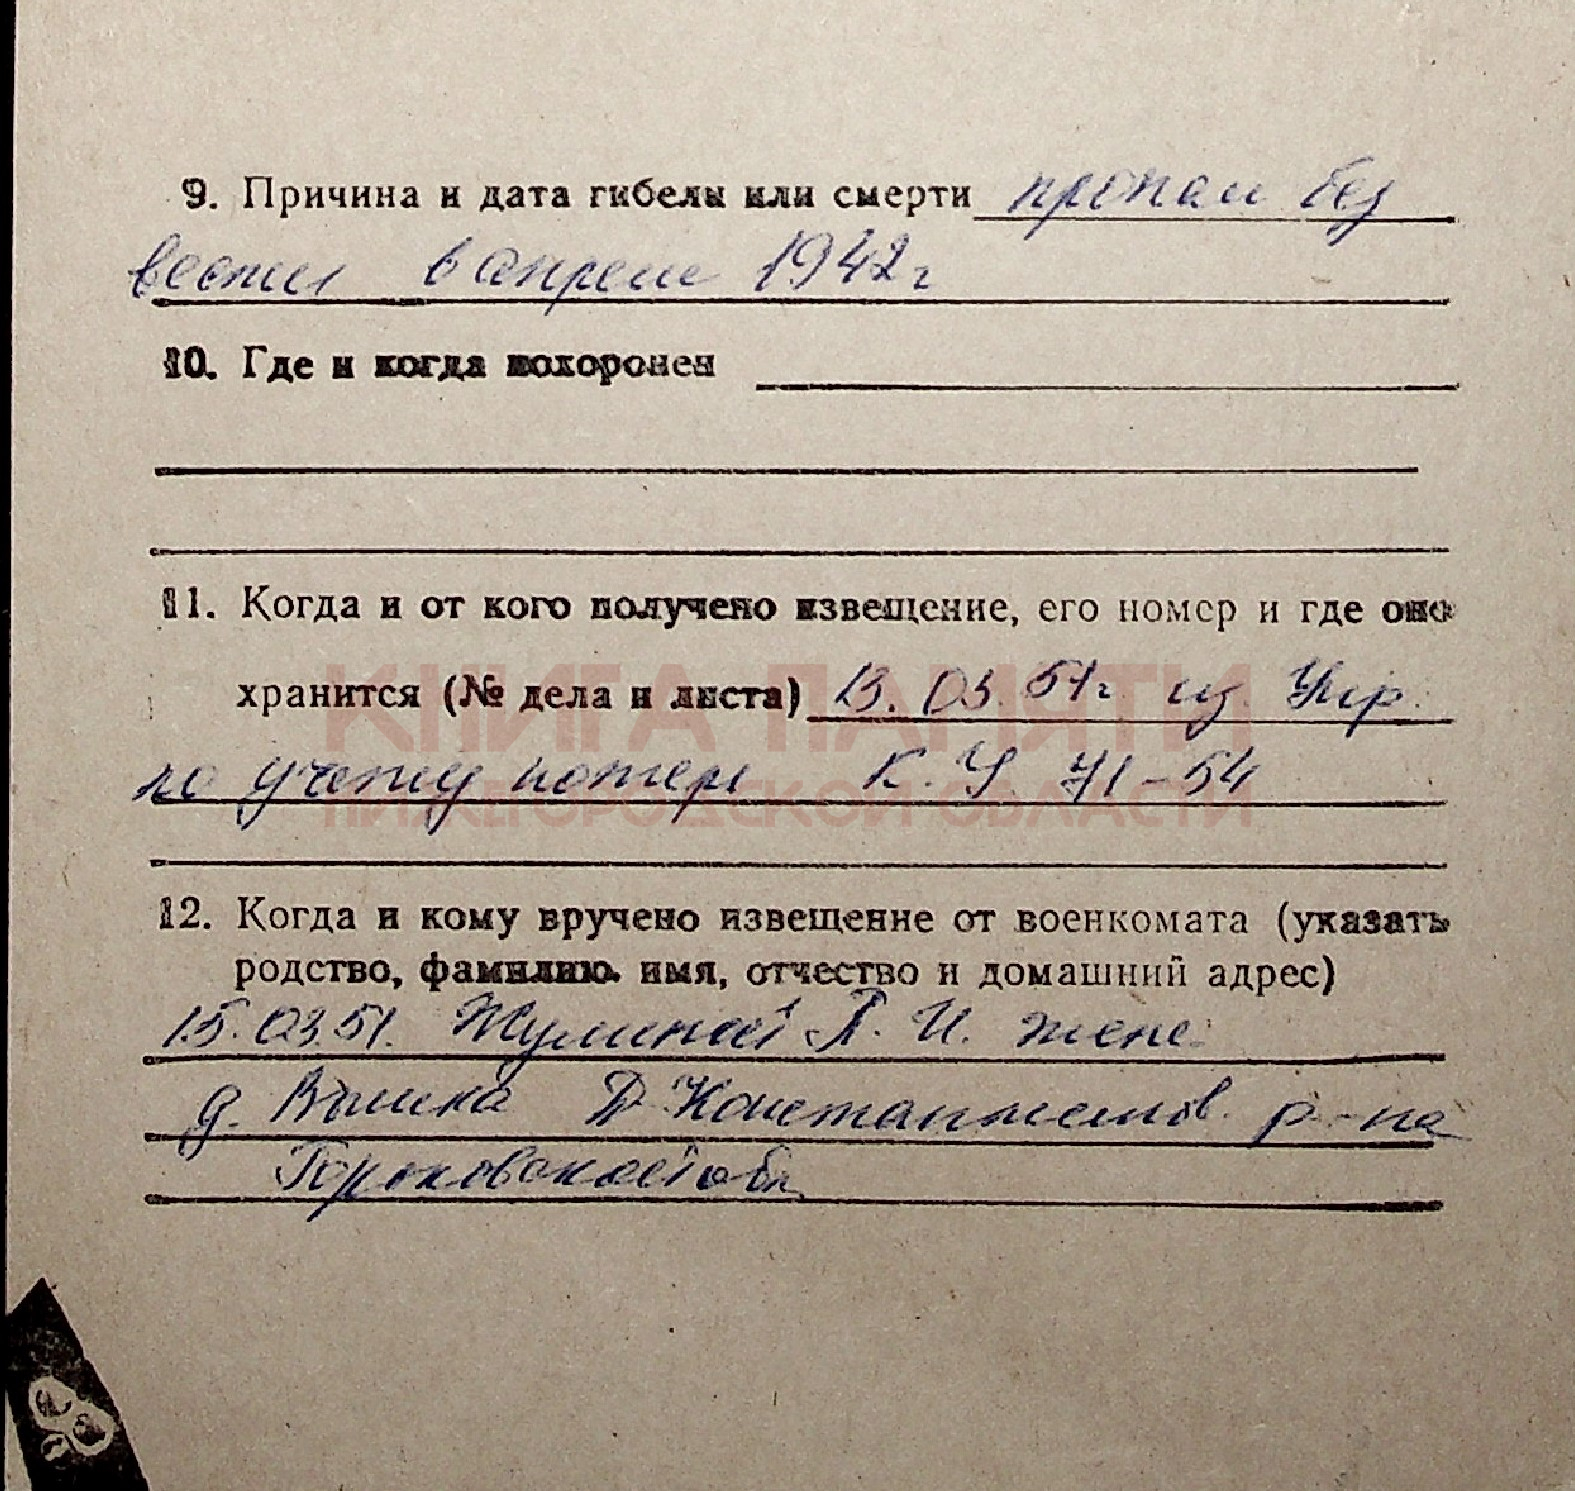 9. Причина и дата гибели или смерти пропал без
вести в апреле 1942 г
10. Где и когда похоронен
11. Когда и от кого получено извещение, его номер и где оно
хранится (№ дела и листа) 13.03.51 г. из. Упр.
КНИГА ПАМЯТИ
по учету потерь К.У 71-54
НИЖЕГОРОДСКОЙ ОБЛАСТИ
12. Когда и кому вручено извещение от военкомата (указать
родство, фамилию. имя, отчество и домашний адрес)
15.03.51. Жулиной И. жене
д. Д. Константинов. р-на
Горьковской обл